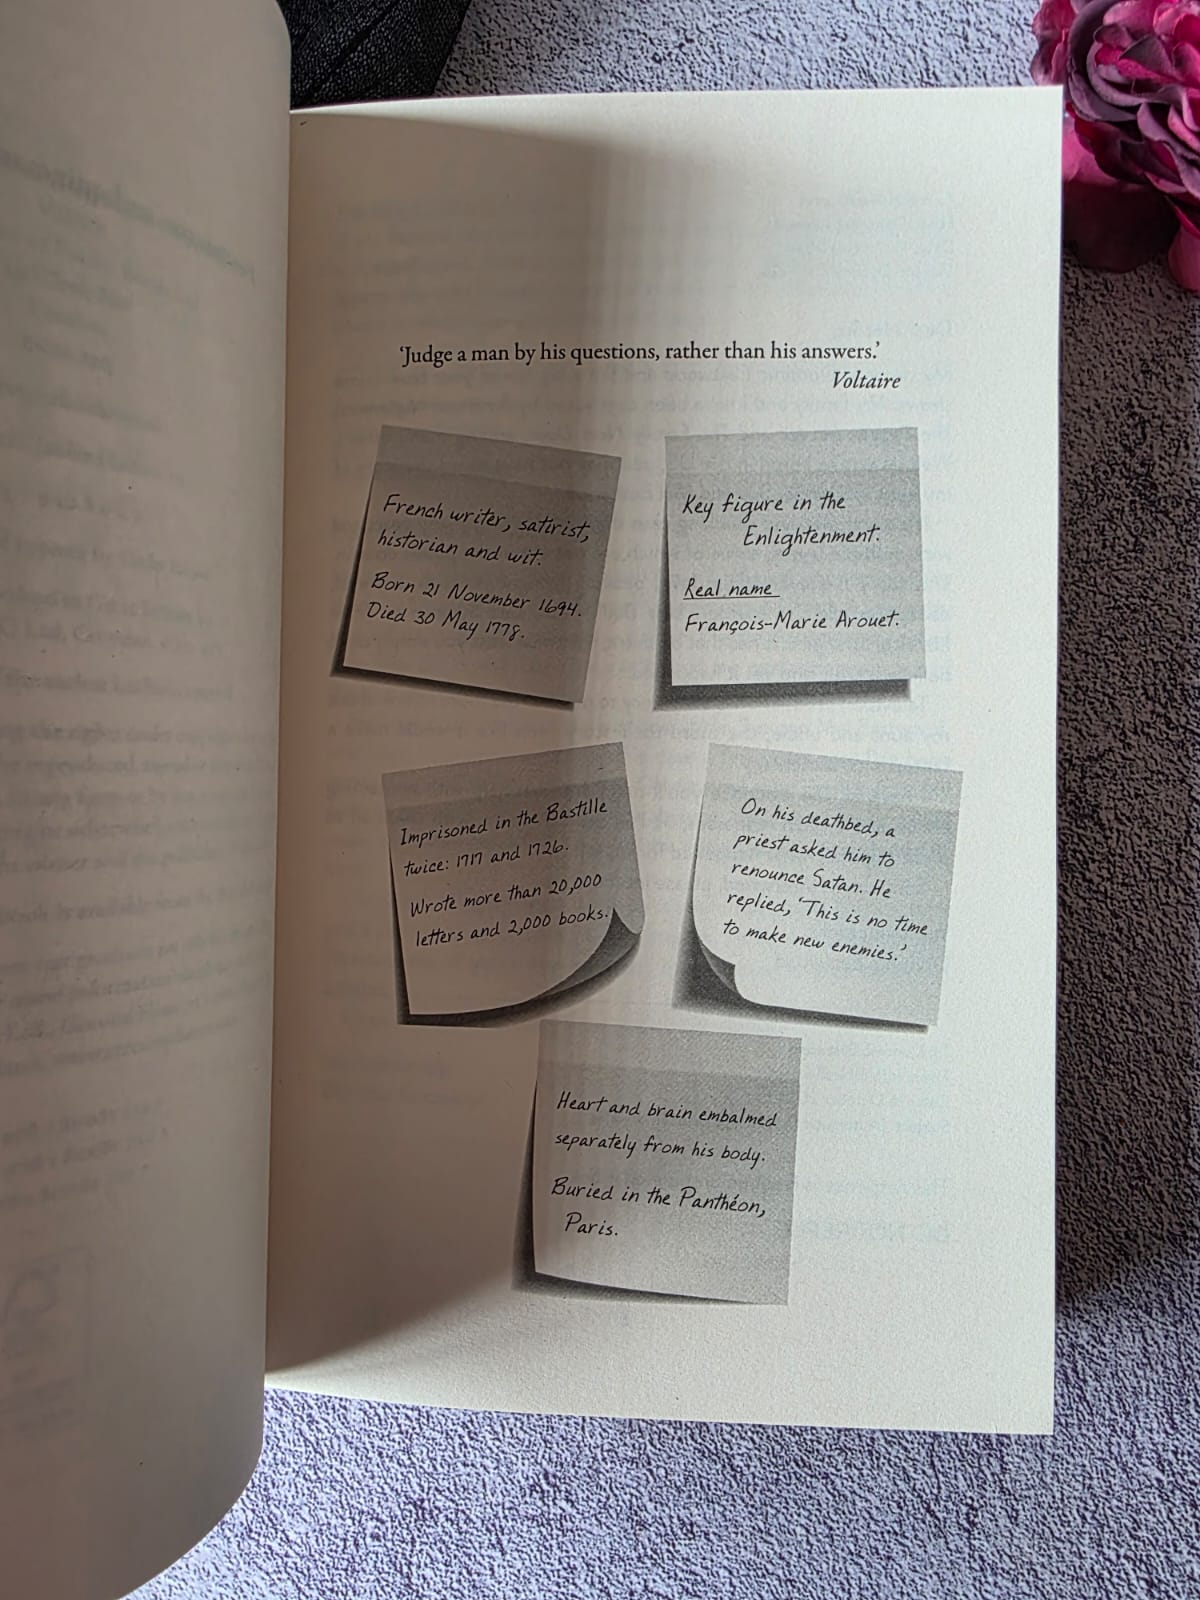 ‘Judge a man by his questions, rather than his answers.’
Voltaire
French writer, satirist,
historian and wit.
Born 21 November 1694.
Died 30 May 1778.
Key figure in the
Enlightenment.
Real name
François-Marie Arouet.
Imprisoned in the Bastille
twice: 1717 and 1726.
Wrote more than 20,000
letters and 2,000 books.
On his deathbed, a
priest asked him to
renounce Satan. He
replied, ‘This is no time
to make new enemies.’
Heart and brain embalmed
separately from his body.
Buried in the Panthéon,
Paris.